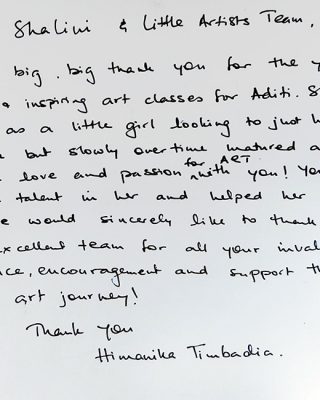 Shalini & Little Artists Team,
big, big thank you for the y
inspiring art classes for Aditi. S
as a little girl looking to just h
but slowly overtime matured a
love and passion for ART with you! You
talent in her and helped her
e would sincerely like to thank
excellent team for all your inval
ce, encouragement and support th
art journey!
Thank you
Himanika Timbadia.